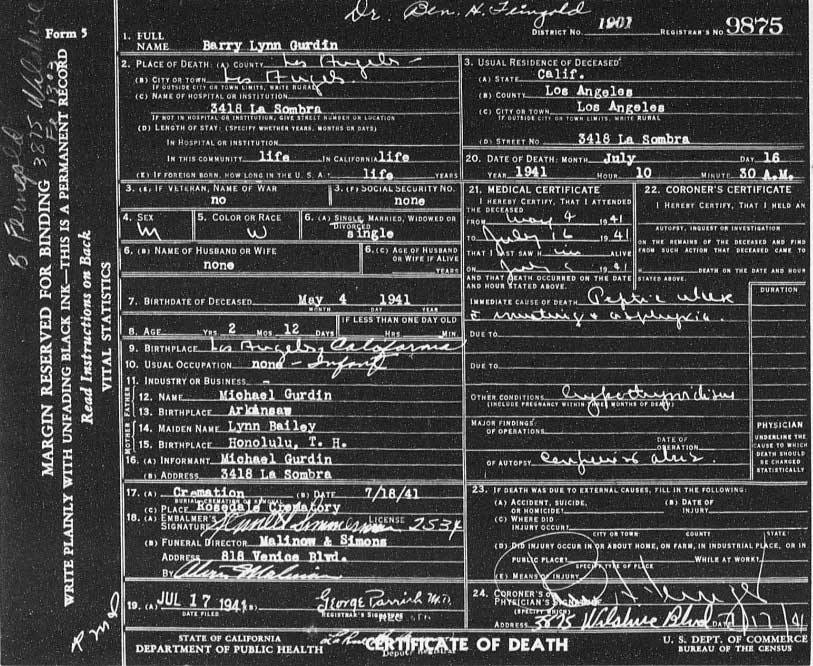 Dr. Ben. H. Feingold
Form 5
DISTRICT NO. 1901 REGISTRAR'S NO. 9875
1. FULL NAME Barry Lynn Gurdin
2. PLACE OF DEATH: (A) COUNTY Los Angeles
(B) CITY OR TOWN Los Angeles
IF OUTSIDE CITY OR TOWN LIMITS, WRITE RURAL
(C) NAME OF HOSPITAL OR INSTITUTION:
3418 La Sombra
IF NOT IN HOSPITAL OR INSTITUTION, GIVE STREET NUMBER OR LOCATION
(D) LENGTH OF STAY: (SPECIFY WHETHER YEARS, MONTHS OR DAYS)
IN HOSPITAL OR INSTITUTION
IN THIS COMMUNITY life IN CALIFORNIA life
(E) IF FOREIGN BORN, HOW LONG IN THE U. S. A.? life YRS
3. USUAL RESIDENCE OF DECEASED
(A) STATE Calif.
(B) COUNTY Los Angeles
(C) CITY OR TOWN Los Angeles
IF OUTSIDE CITY OR TOWN LIMITS, WRITE RURAL
(D) STREET NO. 3418 La Sombra
3. (E) IF VETERAN, NAME OF WAR no
3. (F) SOCIAL SECURITY NO. none
4. SEX M
5. COLOR OR RACE W
6. (A) SINGLE, MARRIED, WIDOWED OR DIVORCED single
6. (B) NAME OF HUSBAND OR WIFE none
6. (C) AGE OF HUSBAND OR WIFE IF ALIVE YEARS
7. BIRTHDATE OF DECEASED May 4 1941
MONTH DAY YEAR
8. AGE YRS. 2 MOS. 12 DAYS IF LESS THAN ONE DAY OLD HRS. MIN.
9. BIRTHPLACE Los Angeles, California
10. USUAL OCCUPATION none - Infant
11. INDUSTRY OR BUSINESS -
FATHER
12. NAME Michael Gurdin
13. BIRTHPLACE Arkansaw
MOTHER
14. MAIDEN NAME Lynn Bailey
15. BIRTHPLACE Honolulu, T. H.
16. (A) INFORMANT Michael Gurdin
(B) ADDRESS 3418 La Sombra
17. (A) Cremation (B) DATE 7/18/41
BURIAL, CREMATION OR REMOVAL
(C) PLACE Rosedale Crematory
18. (A) EMBALMER'S SIGNATURE LICENSE 2534
(B) FUNERAL DIRECTOR Malinow & Simons
ADDRESS 818 Venice Blvd.
BY
19. (A) JUL 17 1941 (B) George Parrish M.D.
DATE FILED REGISTRAR'S SIGNATURE
20. DATE OF DEATH: MONTH July DAY 16
YEAR 1941 HOUR 10 MINUTE 30 A.M.
21. MEDICAL CERTIFICATE
I HEREBY CERTIFY, THAT I ATTENDED THE DECEASED
FROM May 4 1941
TO July 16 1941
THAT I LAST SAW H im ALIVE
ON July 1941
AND THAT DEATH OCCURRED ON THE DATE AND HOUR STATED ABOVE.
22. CORONER'S CERTIFICATE
I HEREBY CERTIFY, THAT I HELD AN
AUTOPSY, INQUEST OR INVESTIGATION
ON THE REMAINS OF THE DECEASED AND FIND FROM SUCH ACTION THAT DECEASED CAME TO
DEATH ON THE DATE AND HOUR STATED ABOVE.
DURATION
IMMEDIATE CAUSE OF DEATH Peptic ulcer
DUE TO
DUE TO
OTHER CONDITIONS
(INCLUDE PREGNANCY WITHIN THREE MONTHS OF DEATH)
MAJOR FINDINGS:
OF OPERATIONS
DATE OF OPERATION
OF AUTOPSY
PHYSICIAN
UNDERLINE THE CAUSE TO WHICH DEATH SHOULD BE CHARGED STATISTICALLY
23. IF DEATH WAS DUE TO EXTERNAL CAUSES, FILL IN THE FOLLOWING:
(A) ACCIDENT, SUICIDE, OR HOMICIDE? (B) DATE OF INJURY
(C) WHERE DID INJURY OCCUR?
CITY OR TOWN COUNTY STATE
(D) DID INJURY OCCUR IN OR ABOUT HOME, ON FARM, IN INDUSTRIAL PLACE, OR IN
PUBLIC PLACE? WHILE AT WORK?
SPECIFY TYPE OF PLACE
(E) MEANS OF INJURY
24. CORONER'S OR PHYSICIAN'S SIGNATURE
(SPECIFY WHICH)
ADDRESS 3875 Wilshire Blvd DATE
STATE OF CALIFORNIA
DEPARTMENT OF PUBLIC HEALTH
CERTIFICATE OF DEATH
U. S. DEPT. OF COMMERCE
BUREAU OF THE CENSUS
Deputy Registrar
MARGIN RESERVED FOR BINDING
WRITE PLAINLY WITH UNFADING BLACK INK—THIS IS A PERMANENT RECORD
Read Instructions on Back
VITAL STATISTICS
B Feingold
3875 Wilshire